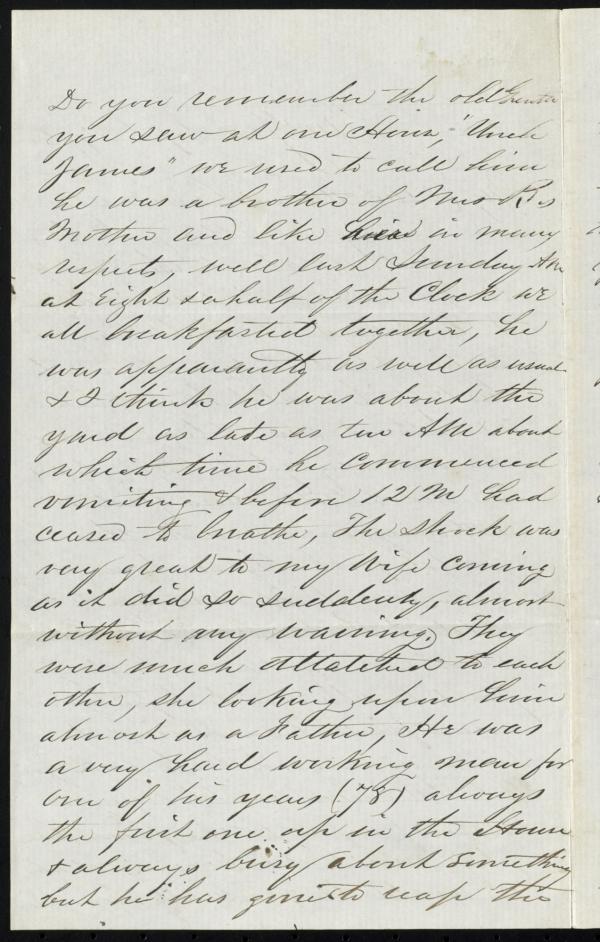 Do you remember the old Gentn
you saw at our House, "Uncle
James" we used to call him
he was a brother of Mrs R's
Mother and like in many
respects, well last Sunday AM
at Eight & a half of the Clock we
all breakfasted together, he
was appearantly as well as usual
& I think he was about the
yard as late as ten AM about
which time he commenced
vomiting & before 12 M had
ceased to breathe, The shock was
very great to my Wife coming
as it did so suddenly, almost
without any warning. They
were much attatched to each
other, she looking upon him
almost as a Father, He was
a very hard working man for
one of his years (78) always
the first one up in the House
& always busy about something
but he has gone to reap the